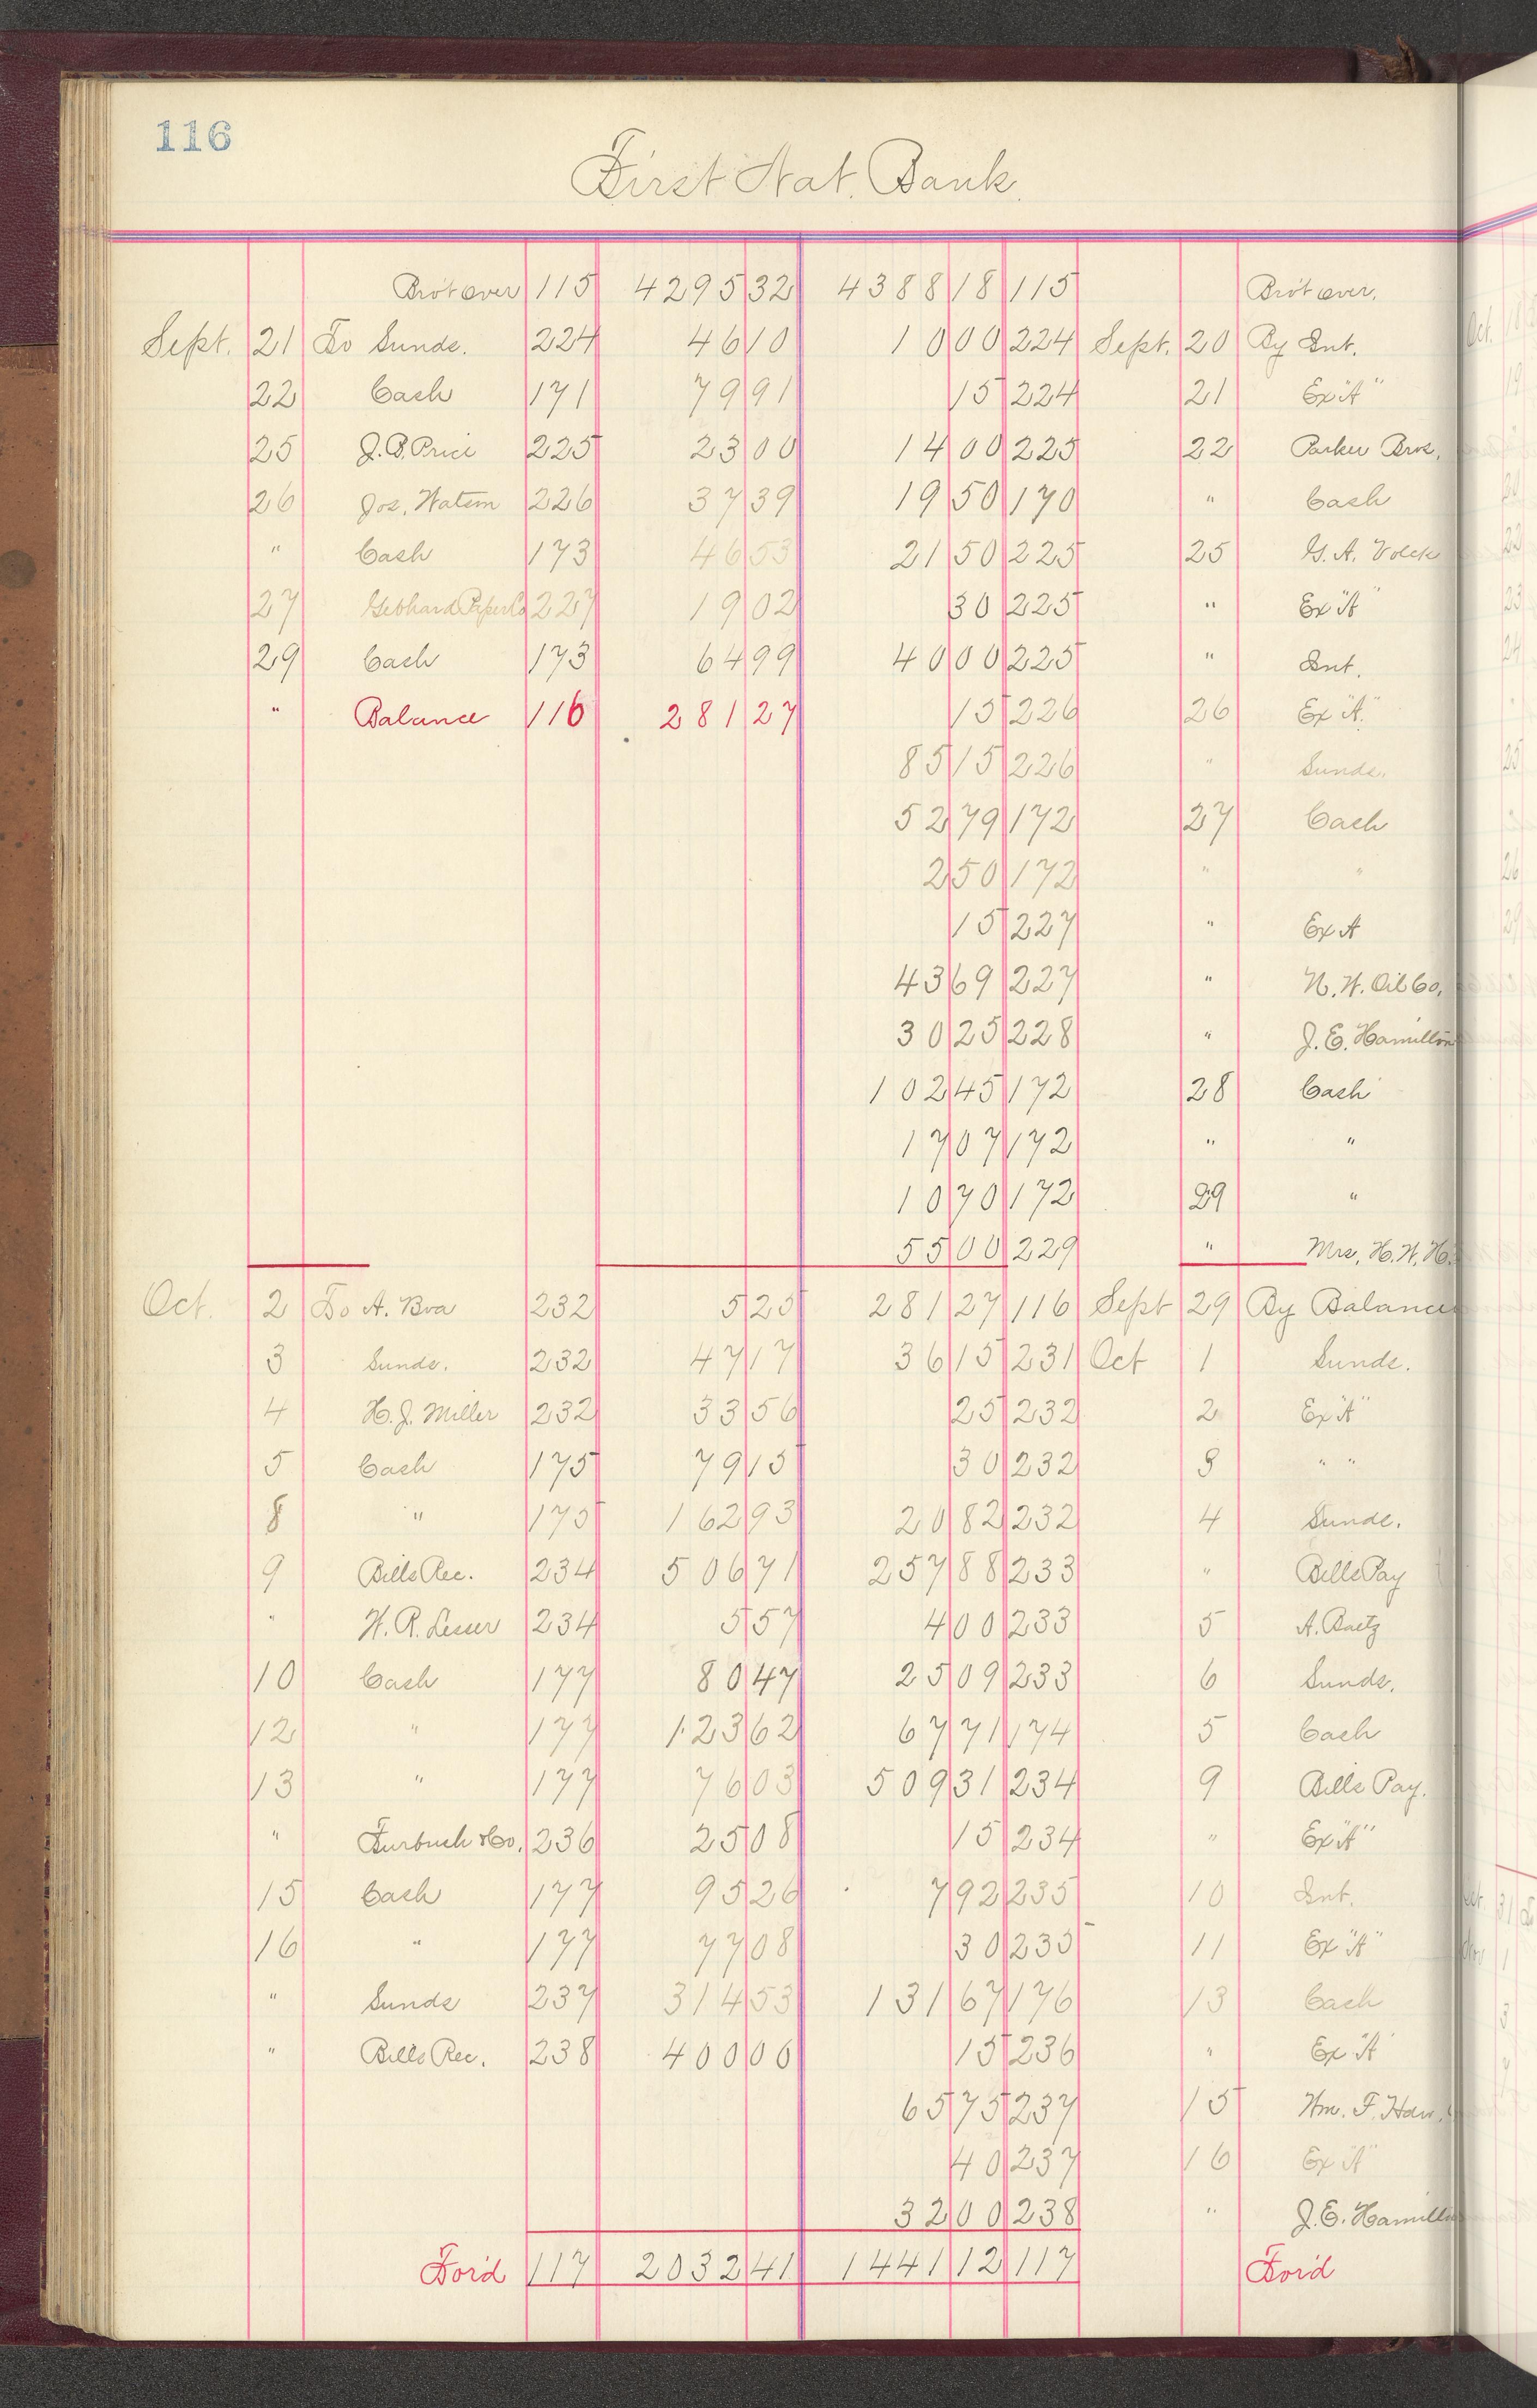 116
First Nat. Bank.
Bro't over 115 4295 32 4388 18 115 Bro't over.
Sept. 21 To Sunds. 224 46 10 10 00 224 Sept. 20 By Int.
22 Cash 171 79 91 15 224 21 Ex "A"
25 J.B. Price 225 23 00 14 00 225 22 Parker Bros.
26 Jos. Watson 226 37 39 19 50 170 " Cash
" Cash 173 46 53 21 50 225 25 G.A. Volck
27 Gebhard Paper Co 227 19 02 30 225 " Ex "A"
29 Cash 173 64 99 40 00 225 " Int.
" Balance 116 281 27 15 226 26 Ex "A"
85 15 226 " Sunds.
52 79 172 27 Cash
2 50 172 " "
15 227 " Ex A
43 69 227 " N.W. Oil Co.
30 25 228 " J.E. Hamilton
102 45 172 28 Cash
17 07 172 " "
10 70 172 29 "
55 00 229 " Mrs. H.W.H.
Oct. 2 To A. Bva 232 5 25 281 27 116 Sept 29 By Balance
3 Sunds. 232 47 17 36 15 231 Oct 1 Sunds.
4 H.J. Miller 232 33 56 25 232 2 Ex "A"
5 Cash 175 79 15 30 232 3 " "
8 " 175 162 93 20 82 232 4 Sunds.
9 Bills Rec. 234 506 71 257 88 233 " Bills Pay
" W.R. Lesser 234 5 57 4 00 233 5 A. Baetz
10 Cash 177 80 47 25 09 233 6 Sunds.
12 " 177 123 62 67 71 174 5 Cash
13 " 177 76 03 509 31 234 9 Bills Pay.
" Furbush & Co. 236 25 08 15 234 " Ex "A"
15 Cash 177 95 26 7 92 235 10 Int.
16 " 177 77 08 30 235 11 Ex "A"
" Sunds 237 314 53 131 67 176 13 Cash
" Bills Rec. 238 400 00 15 236 " Ex "A"
65 75 237 15 Wm. F. Hdw.
40 237 16 Ex "A"
32 00 238 " J.E. Hamilton
For'd 117 2032 41 1441 12 117 For'd